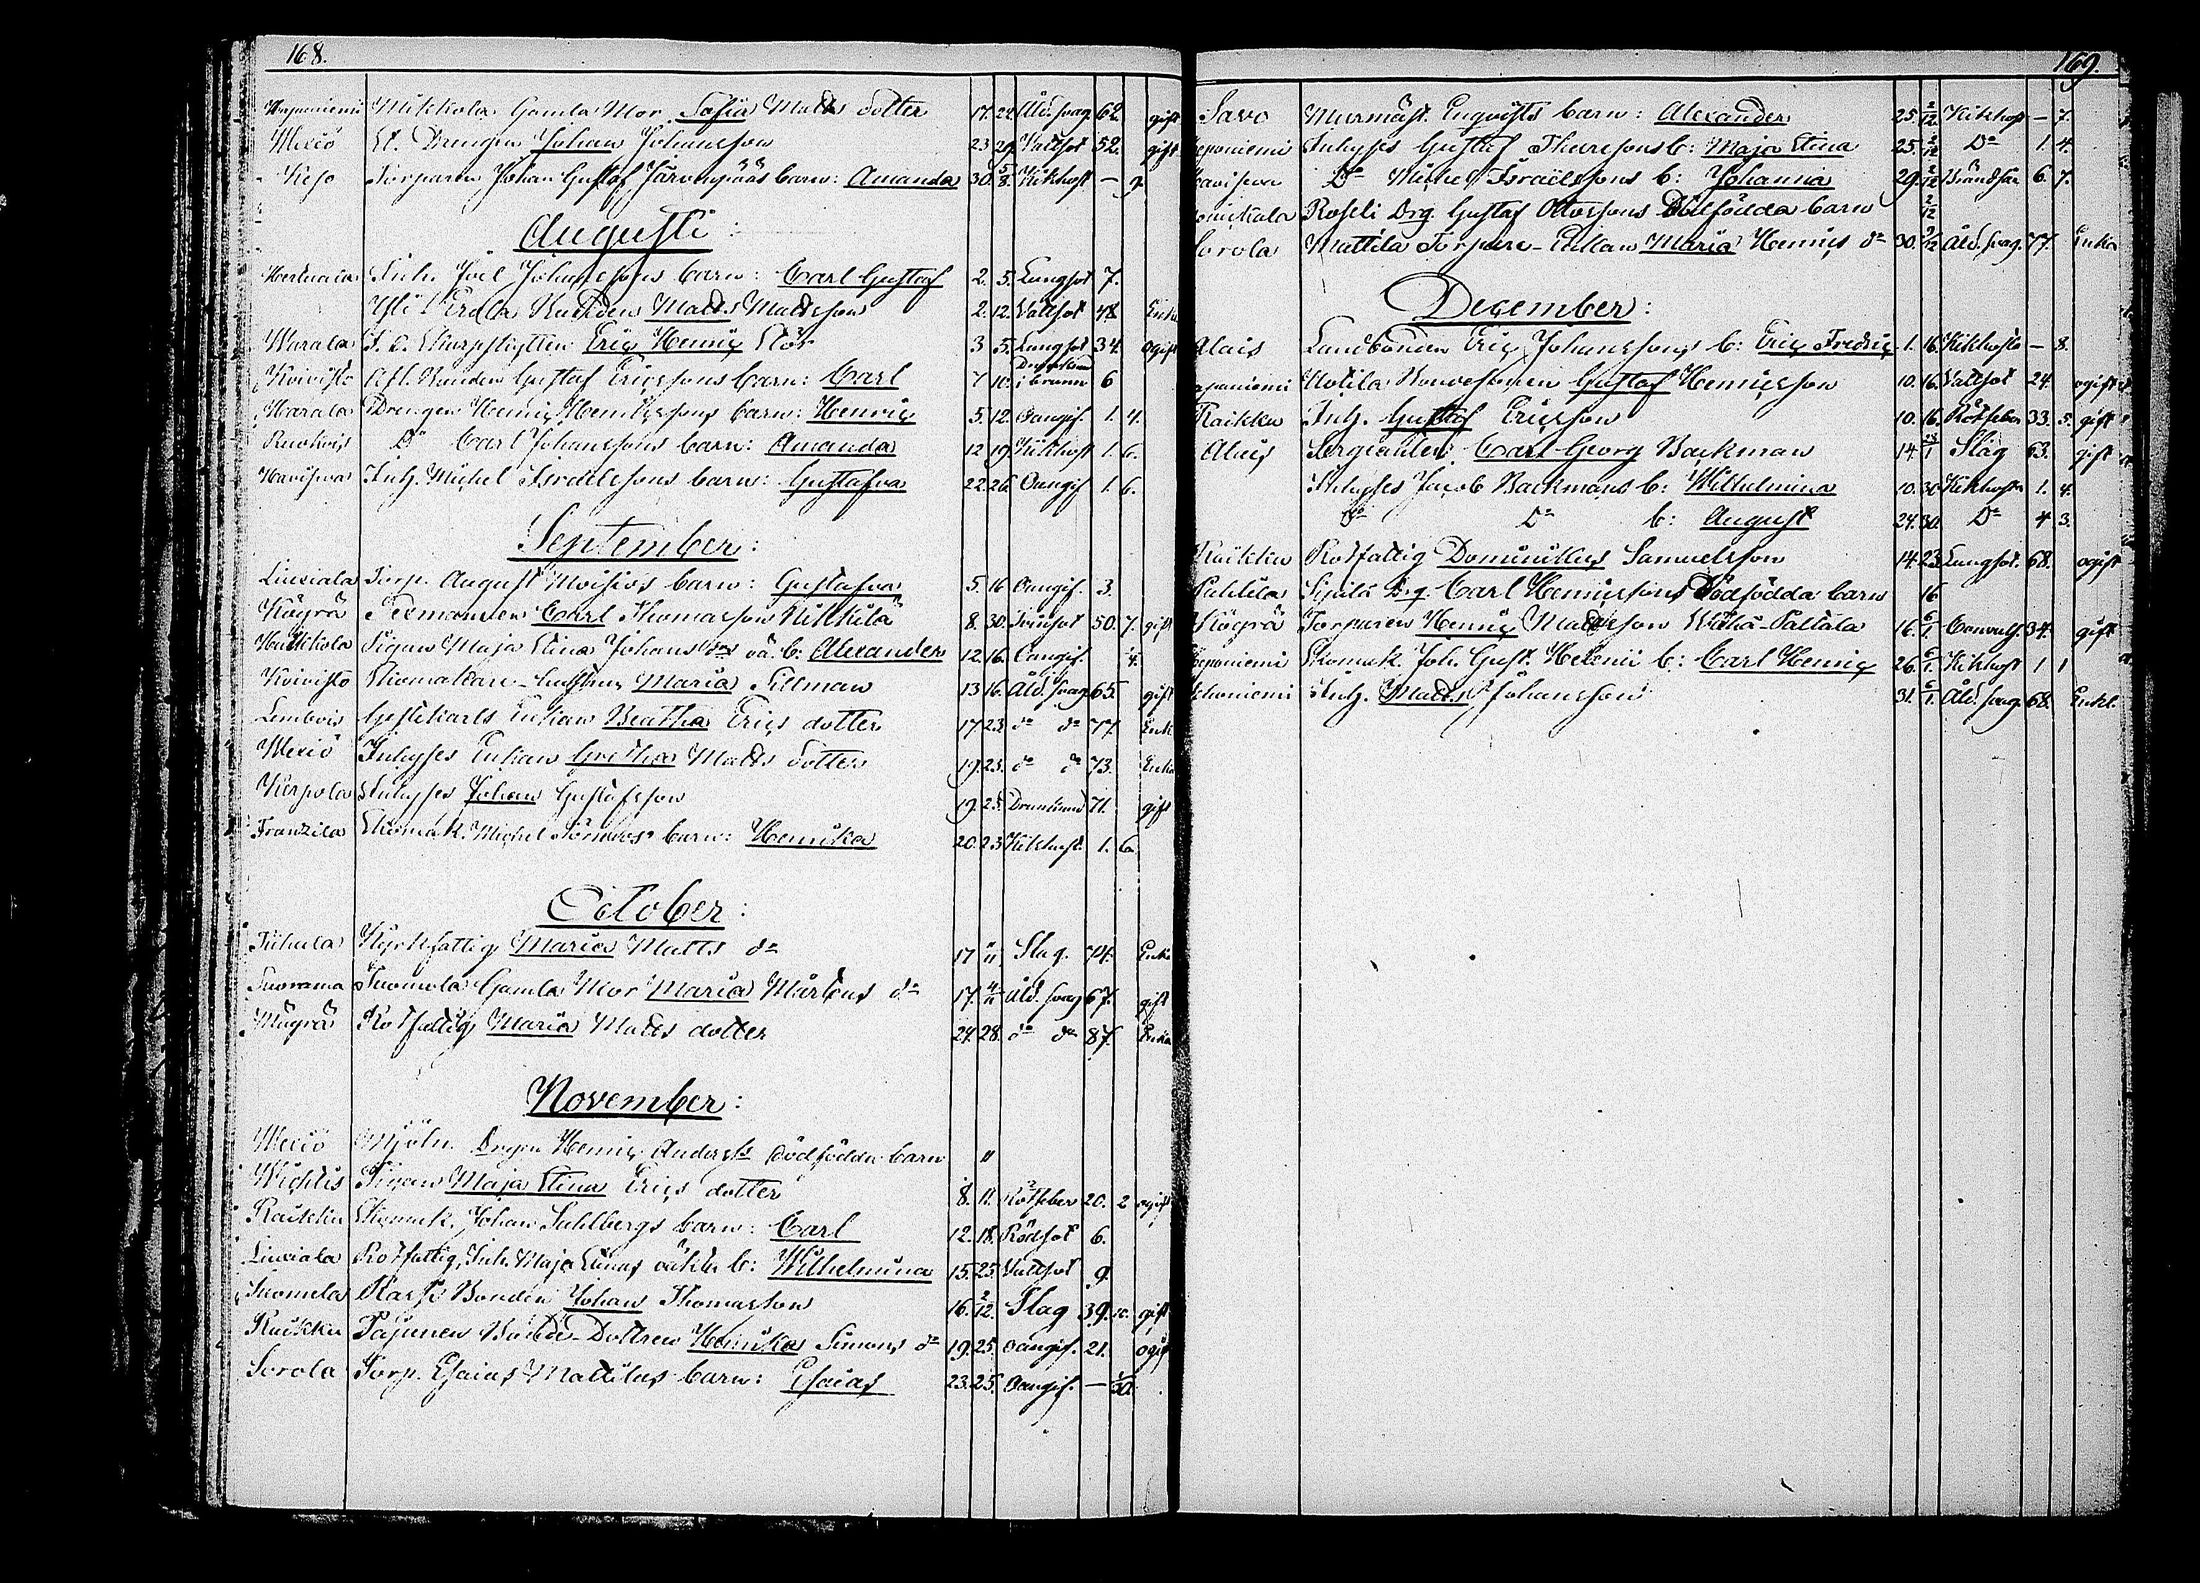 168.
Mikkola Gamla Mor Sofia Matts dotter 17. 22. Åld. svag. 62. gift
Mexiö St. Drengen Johan Johansson 23 29. Vattsot 52. gift
Torparen Johan Gustaf Järvenpääs barn: Amanda 30. 5/8. Kikhost — 9.
Augusti
Inh. Joel Johanssons barn: Carl Gustaf 2. 5. Lungsot 7.
Matts Mattsson 2. 12. Vattsot 48. Enkl.
Warala Eric Henric Stör 3 5. Lungsot 34. ogift
Koivisto Afl. Bonden Gustaf Ericssons barn: Carl 7 10. Drunknad i brunn 6
Harala Drengen Henric Henricssons barn: Henric 5. 12. Oangif. 1. 4.
Ruokois Do Carl Johanssons barn: Amanda 12 19. Kikhost 1. 6.
Haviseva Inh. Michel Israelssons barn: Gustafva 22. 26. Oangif 1. 6.
September:
Liuxiala Torp. August Moisios barn: Gustafva 5. 16 Oangif. 3.
Kögrä Sexmannen Carl Thomasson Nikkilä 8. 30. Tvinsot 50. 7. gift
Huikkola Pigan Maja Stina Johans dos oä. b: Alexander 12. 16. Oangif. 4.
Koivisto Skomakare-hustrun Maria Sillman 13 16. Åld. svag 65. gift
Lembois Gestikarls Enkan Beatha Erics dotter 17. 23. do do 77. Enk
Mexiö Inhyses Enkan Gretha Matts dotter 19. 23. do do 73. Enka
Kerpola Inhyses Johan Gustafsson 19. 25. Drunknad 71. gift
Franzila Skomak. Michel Törnroos barn: Henrika 20. 23 Kikhost. 1. 6.
October:
Kyrkfattig Maria Matts do 17 11 Slag. 74. Enka
Suorama Tuomola Gamla Mor Maria Mårtens do 17. 4/11 Åld. svag 67. gift
Rotfattig Maria Matts dotter 24. 28. do do 87. Enka
November:
Mexiö Mjöln. Drgen Henric Anderss dödfödda barn 11
Wichtis Pigan Maja Stina Erics dotter 8. 11. Rötfeber 20. 2 ogift
Raikku Skomak. Johan Suhlbergs barn: Carl 12. 18. Rödsot 6.
Liuxiala Rotfattig, Inh. Maja Stinas oäkta b: Wilhelmina 15. 25. Vattsot 9.
Tuomela Bonden Johan Thomasson 16. 2/12. Slag 39. 10. gift
Raikku Pajunen Bonde-Dottren Henrika Simons do 19. 25. oangif. 21. ogift
Sorola Torp. Esaias Mattilas barn: Esaias 23. 25. Oangif. — 1/30.
169.
Savo Murmäst. Enqvists barn: Alexander 25. 2/12. Kikhost — 7.
Inhyses Gustaf Thuressons b: Maja Stina 25. 2/12 Do 1. 4.
Havisewa Do Michel Israëlssons b: Johanna 29. 2/12 Brändskn 6. 7.
Drg. Gustaf Ottossons dödfödda barn 2/12
Sorola Mattila Torpare-Enkan Maria Henrics do 30. 9/12 Åld. svag. 77. Enka
December:
Alais Landbonden Eric Johanssons b: Eric Fredric 1. 16. Kikhosta — 8.
Kotila Gustaf Henricsson 10. 16. Vattsot 24. ogift
Raikku Inh. Gustaf Ericsson 10. 16. Rötfeber 33. 5. gift
Alais Sergeanten Carl Georg Backman 14. 23/1 Slag 63. gift
Inhyses Jacob Backmans b: Wilhelmina 10. 30 Kikhosta 1. 4.
Do Do b: August 24. 30. Do 4 3.
Raikku Rotfattig Dominikus Samuelsson 14. 23 Lungsot. 68. ogift
Drg. Carl Henricssons Dödfödda barn 16
Kögrä Torparen Henric Mattsson 16. 6/1. Convuls. 34. gift
Skomak. Joh. Gust. Helenii b: Carl Henric 26. 6/1. Kikhost 1 1
Inh. Matts Johansson 31. 6/1. Åld. svag. 68. Enkl.